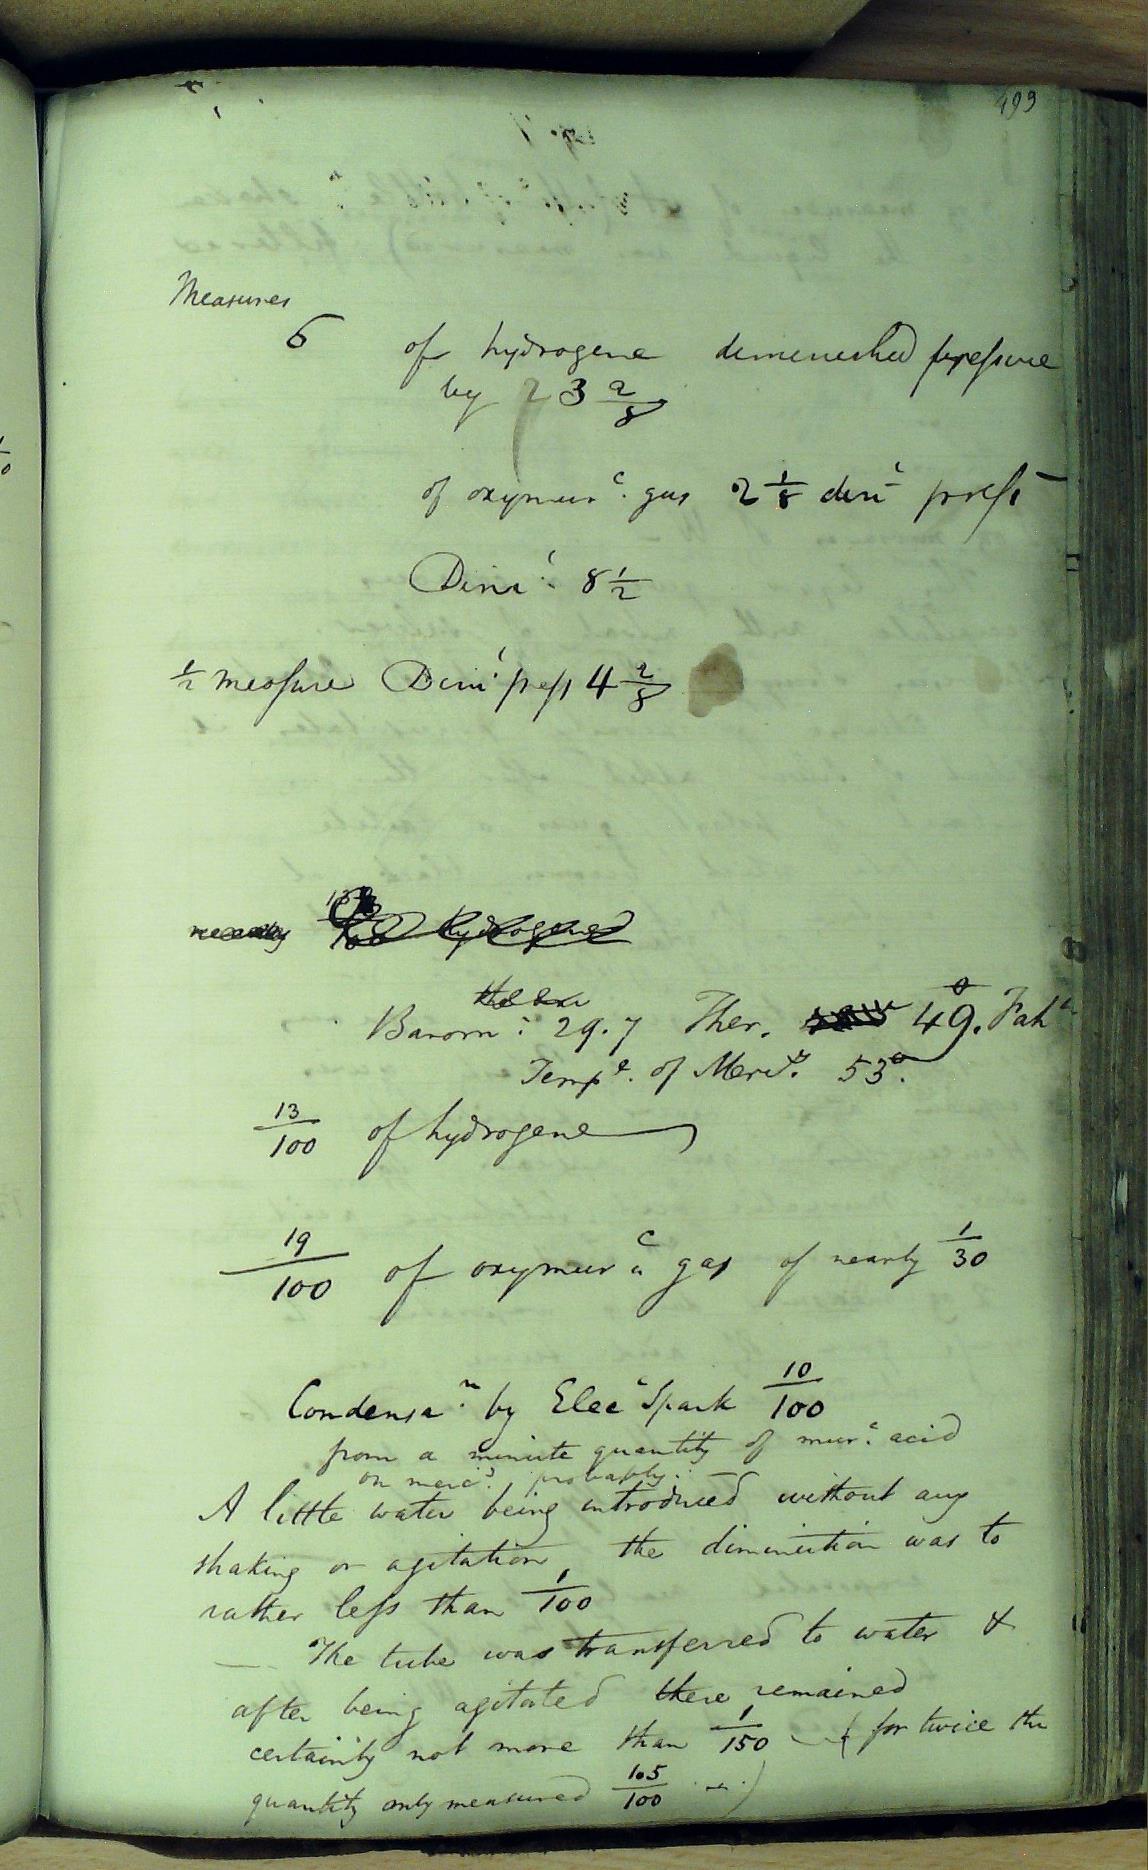 499
Measures
6 of hydrogene diminished pressure
by 23 2/8
of oxymurc. gas 2 1/8 dimc press
Dimc. 8 1/2
1/2 measure Dimc press 4 2/8
nearly 13/100 hydrogene
Baromr. 29.7 Ther. 49.° Faht
Tempe. of Mercy. 53°.
13/100 of hydrogene
19/100 of oxymurc gas of nearly 1/30
Condensan. by Elec Spark 10/100
from a minute quantity of murc. acid
on merc. probably.
A little water being introduced without any
shaking or agitation, the diminution was to
rather less than 1/100
— The tube was transferred to water &
after being agitated there remained
certainly not more than 1/150 — (for twice the
quantity only measured 1.05/100 )